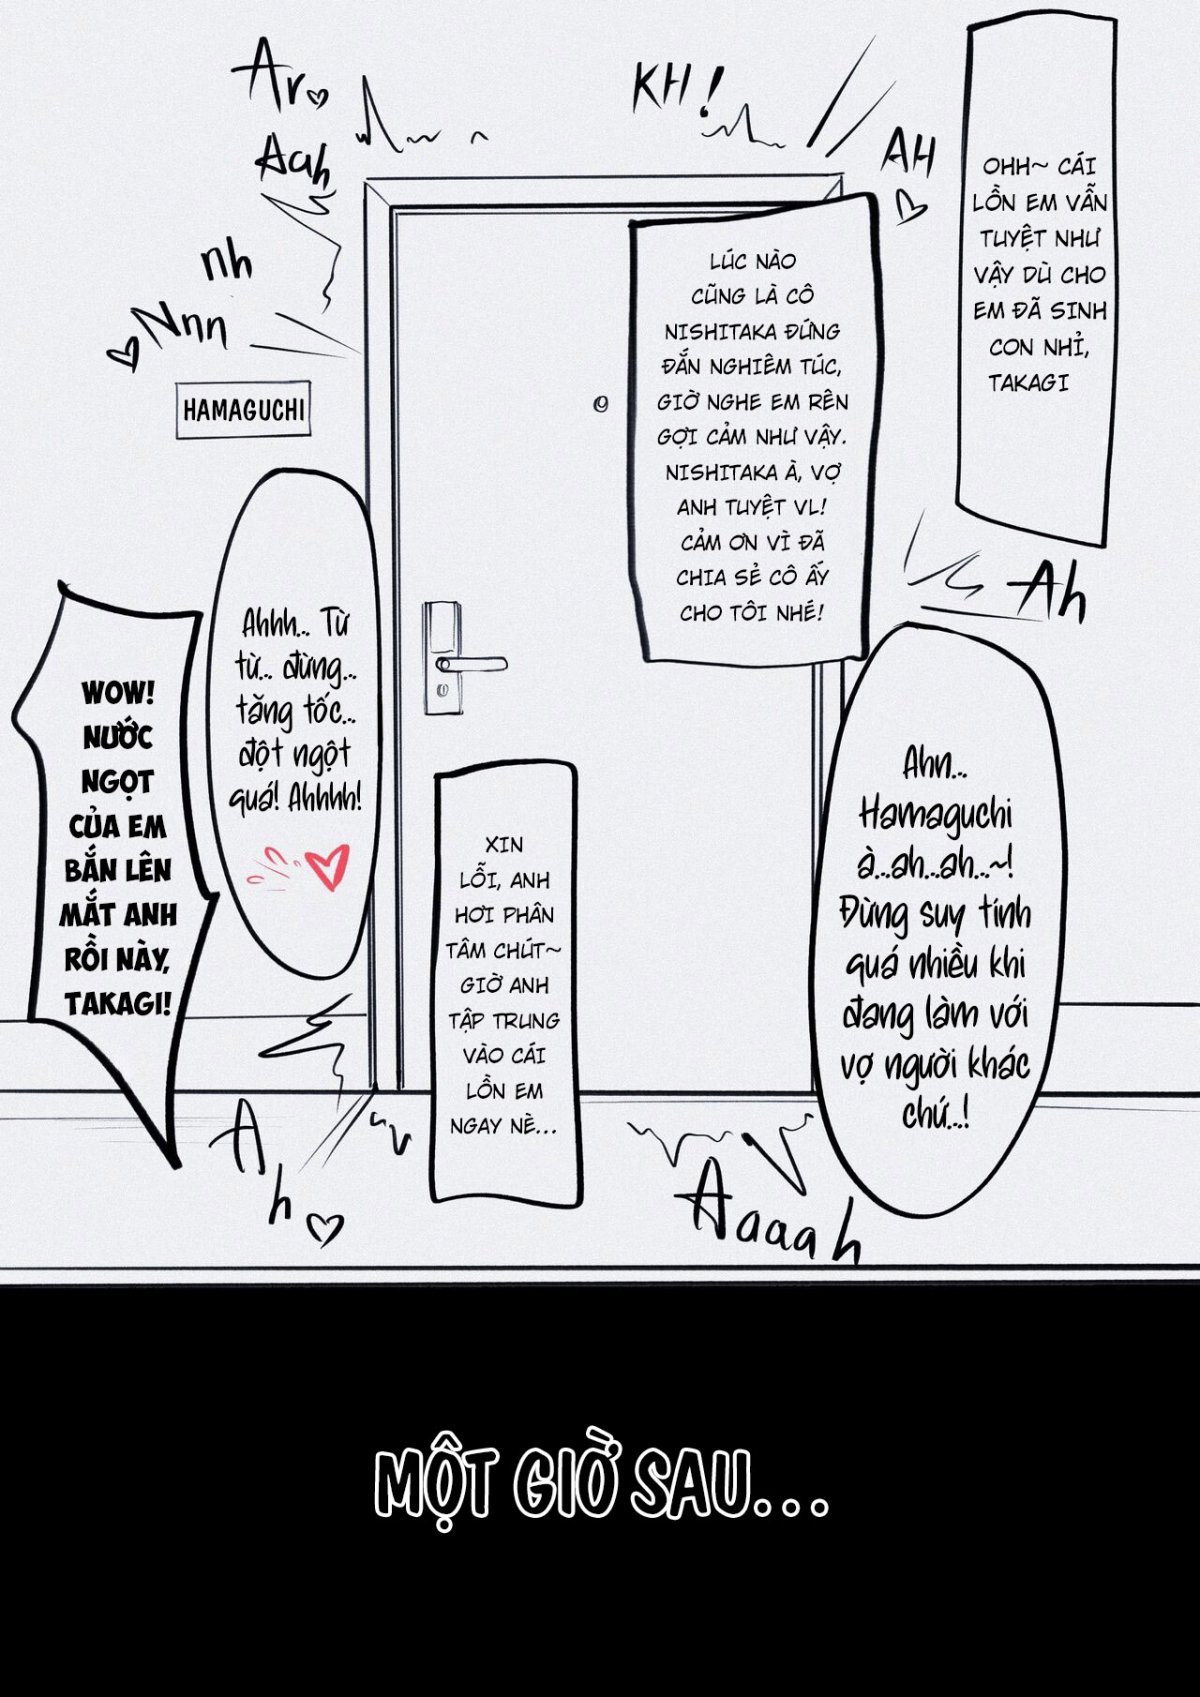 Ar
Aah
nh
Nnn
KH!
AH
OHH~ CÁI
LỒN EM VẪN
TUYỆT NHƯ
VẬY DÙ CHO
EM ĐÃ SINH
CON NHỈ,
TAKAGI
LÚC NÀO
CŨNG LÀ CÔ
NISHITAKA ĐỨNG
ĐẮN NGHIÊM TÚC,
GIỜ NGHE EM RÊN
GỢI CẢM NHƯ VẬY.
NISHITAKA À, VỢ
ANH TUYỆT VL!
CẢM ƠN VÌ ĐÃ
CHIA SẺ CÔ ẤY
CHO TÔI NHÉ!
HAMAGUCHI
Ah
Ahn...
Hamaguchi
à...ah...ah...~!
Đừng suy tính
quá nhiều khi
đang làm với
vợ người khác
chứ...!
XIN
LỖI, ANH
HƠI PHÂN
TÂM CHÚT~
GIỜ ANH
TẬP TRUNG
VÀO CÁI
LỒN EM
NGAY NÈ...
Ahhh... Từ
từ... đừng...
tăng tốc...
đột ngột
quá! Ahhhh!
WOW!
NƯỚC
NGỌT
CỦA EM
BẮN LÊN
MẮT ANH
RỒI NÀY,
TAKAGI!
Ah
Aaaah
MỘT GIỜ SAU...